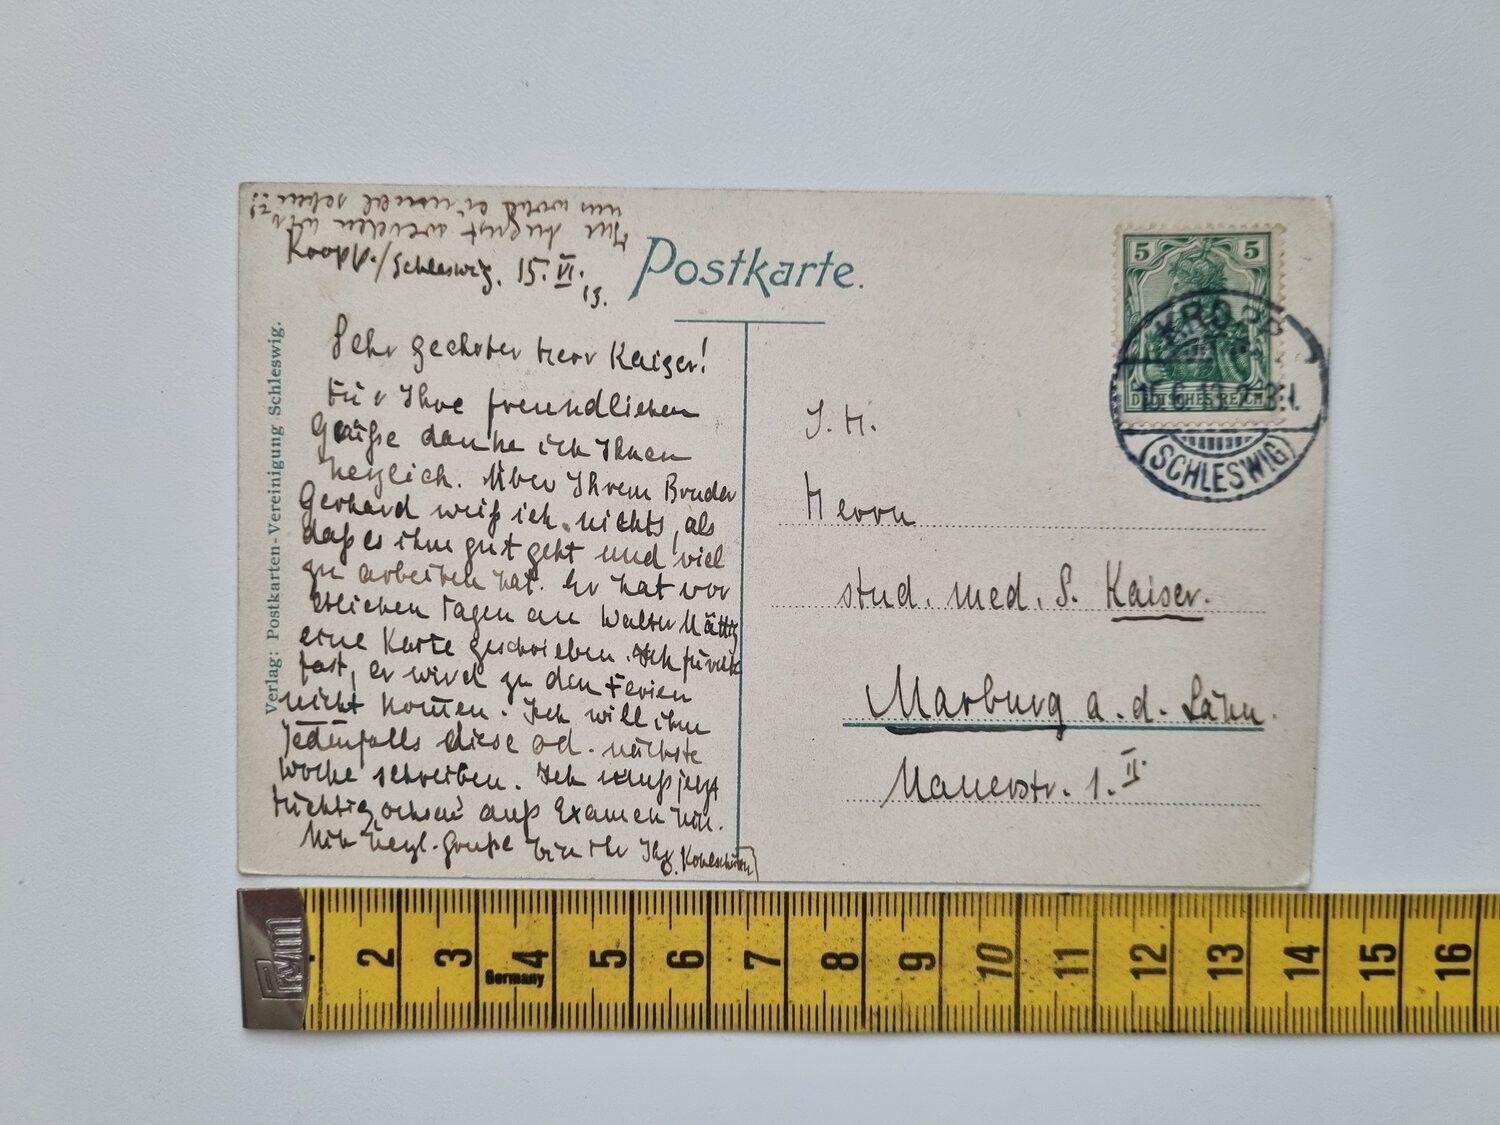 Im August werden wir
uns wohl einmal sehen!?
Kropp./Schleswig. 15. VI.
13.
Postkarte.
Sehr geehrter Herr Kaiser!
Für Ihre freundlichen
Grüße danke ich Ihnen
herzlich. Über Ihrem Bruder
Gerhard weiß ich nichts, als
daß es ihm gut geht und viel
zu arbeiten hat. Er hat vor
etlichen Tagen an Walter
eine Karte geschrieben. Ich fürchte
fast, er wird zu den Ferien
nicht kom̅en. Ich will ihm
Jedenfalls diese od. nächste
Woche schreiben. Ich muß jetzt
tüchtig ochsen aufs Examen hin.
Mit herzl. Gruße bin ich Ihr
Verlag: Postkarten-Vereinigung Schleswig.
5 5
DEUTSCHES REICH
KROPP
15.6.13.
(SCHLESWIG)
S. H.
Herrn
stud. med. S. Kaiser.
Marburg a. d. Lahn.
Mauerstr. 1. II.
2 3 4 5 6 7 8 9 10 11 12 13 14 15 16
Germany